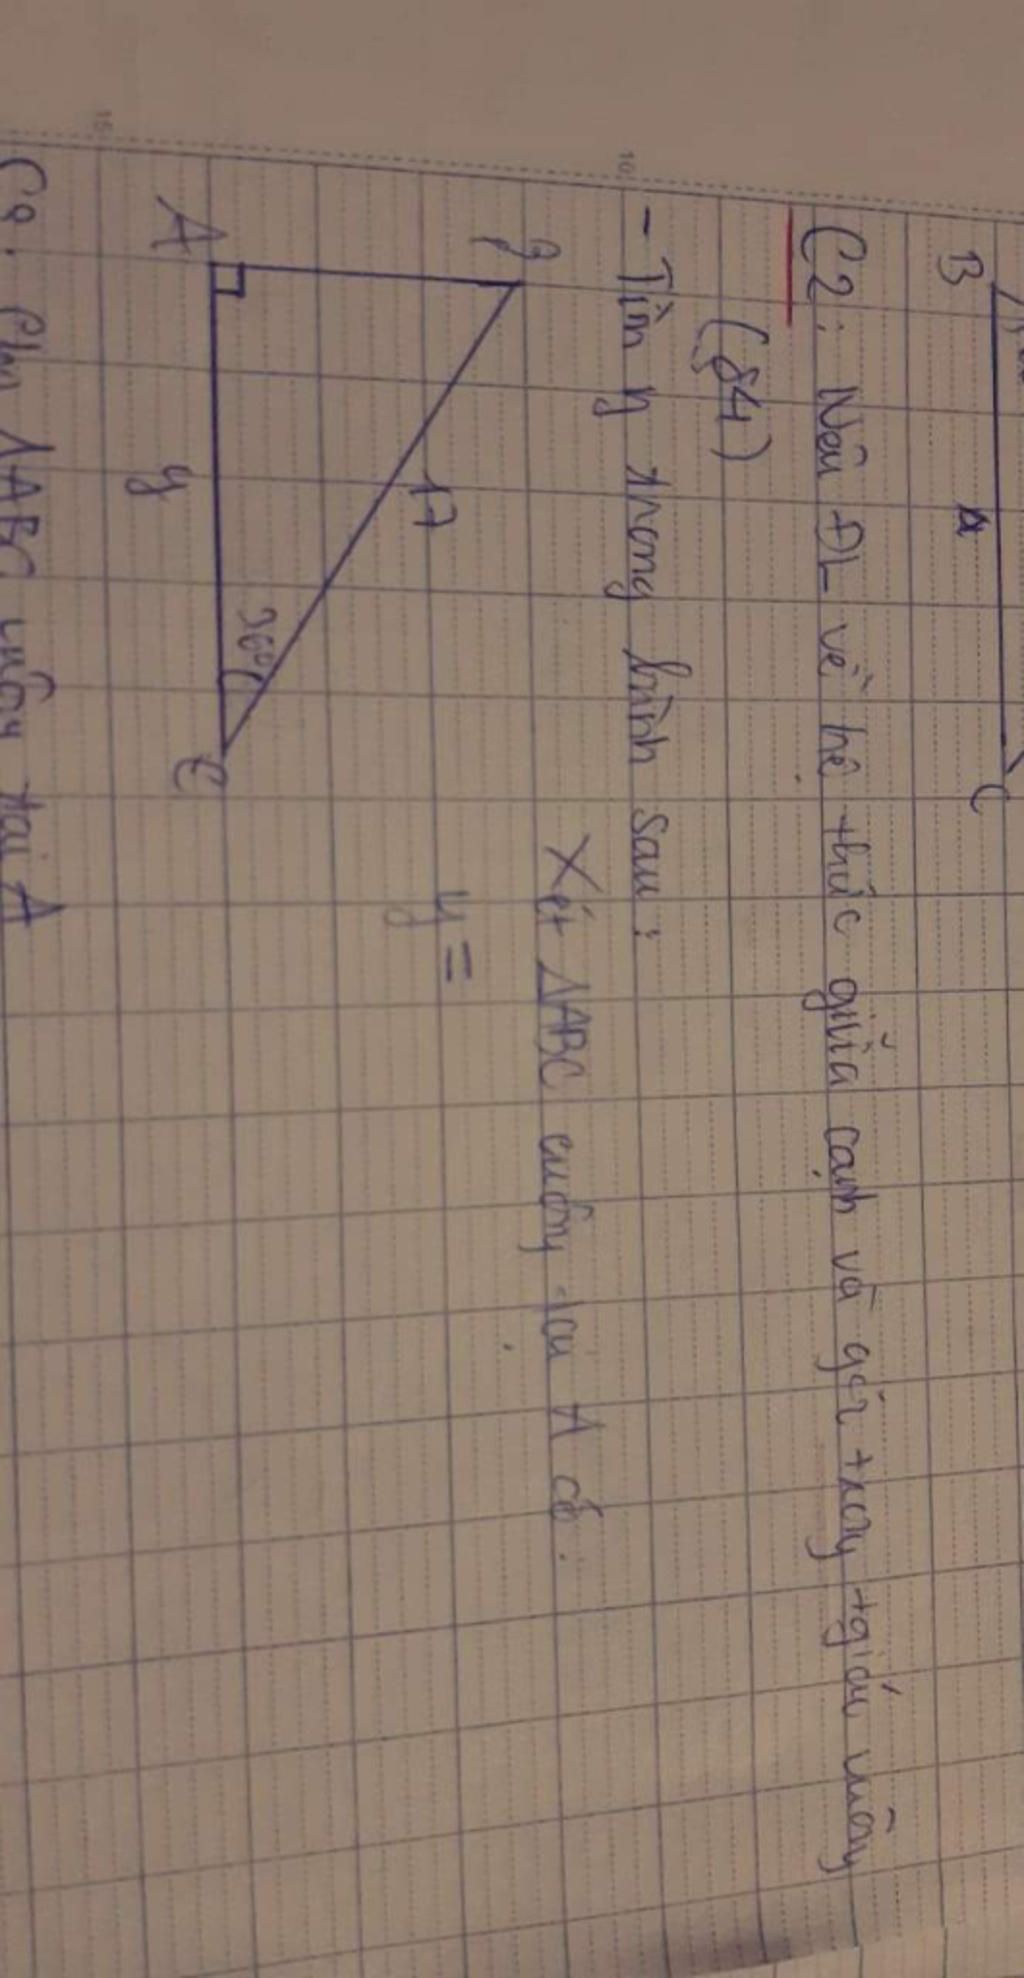 B
a
C
C2: Nêu ĐL về hệ thức giữa cạnh và góc trong tgiác vuông
(§4)
- Tìm y trong hình sau:
B
17
30°
A
y
C
Xét ΔABC vuông tại A có:
y =
Cho ΔABC vuông tại A
10
15